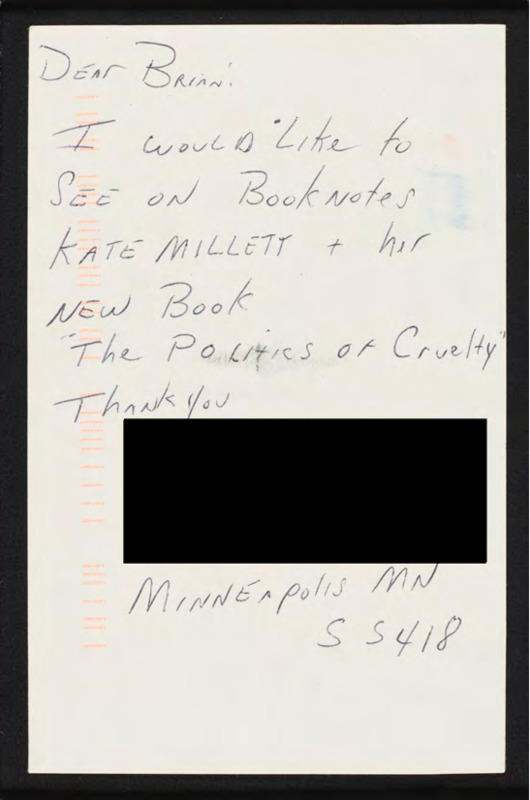 Dear Brian:
I would like to
See on Booknotes
Kate Millett + her
New Book
"The Politics of Cruelty"
Thank you
Minneapolis MN
55418